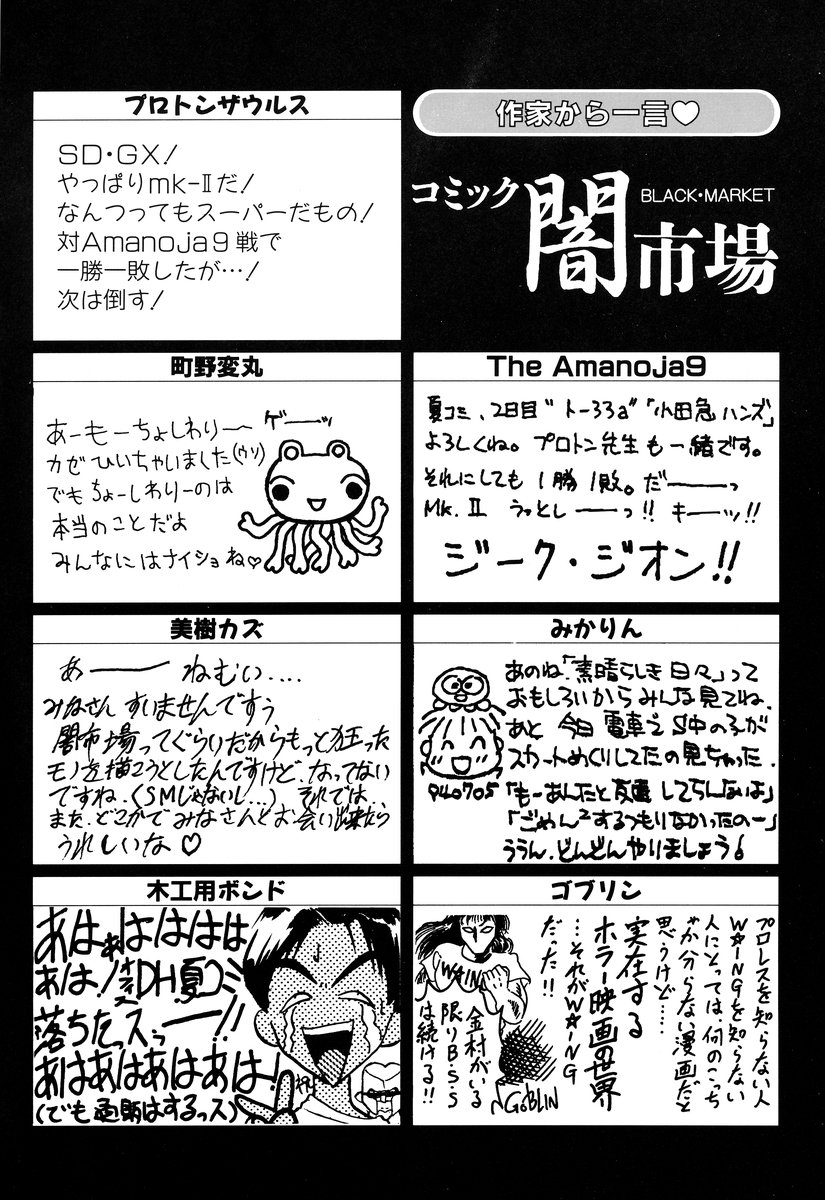 作家から一言♡
コミック闇市場
BLACK・MARKET
プロトンザウルス
SD・GX!
やっぱりmk-Ⅱだ!
なんつってもスーパーだもの!
対Amanoja9戦で
一勝一敗したが…!
次は倒す!
The Amanoja9
夏コミ、2日目"ト-33a"「小田急ハンズ」
よろしくね。プロトン先生も一緒です。
それにしても1勝1敗。だーーーっ
Mk.Ⅱ うっとしーーっ!! キーーッ!!
ジーク・ジオン!!
町野変丸
あーもーちょしわりー ゲーーッ
カゼひいちゃいました(ウソ)
でもちょーしわりーのは
本当のことだよ
みんなにはナイショね♡
みかりん
あのね、「素晴らしき日々」って
おもしろいからみんな見てね。
あと今日電車で S中の子が
スカートめくりしてたの見ちゃった。
「もーあんたと友達してらんないよ」
「ごめん²するつもりなかったのー」
ううん、どんどんやりましょう!
940705
美樹カズ
あーーー ねむい....
みなさん すいませんですぅ
闇市場ってぐらいだからもっと狂った
モノを描こうとしたんですけど、なってない
ですね。(SMじゃないし…) それでは、
また、どこかでみなさんとお会い出来たら
うれしいな♡
ゴブリン
プロレスを知らない人
W★INGを知らない
人にとっては、何のこっち
ゃか分らない漫画だと
思うけど……
実在する
ホラー映画の世界
…それがW★ING
だった!!
W★ING
金村がいる
限りB・S・S
は続ける!!
GOBLIN
木工用ボンド
あはぁはははは
あは!DH夏コミ
落ちたっスっーー!!
あはあはあはあは!
(でも通販はするっス)